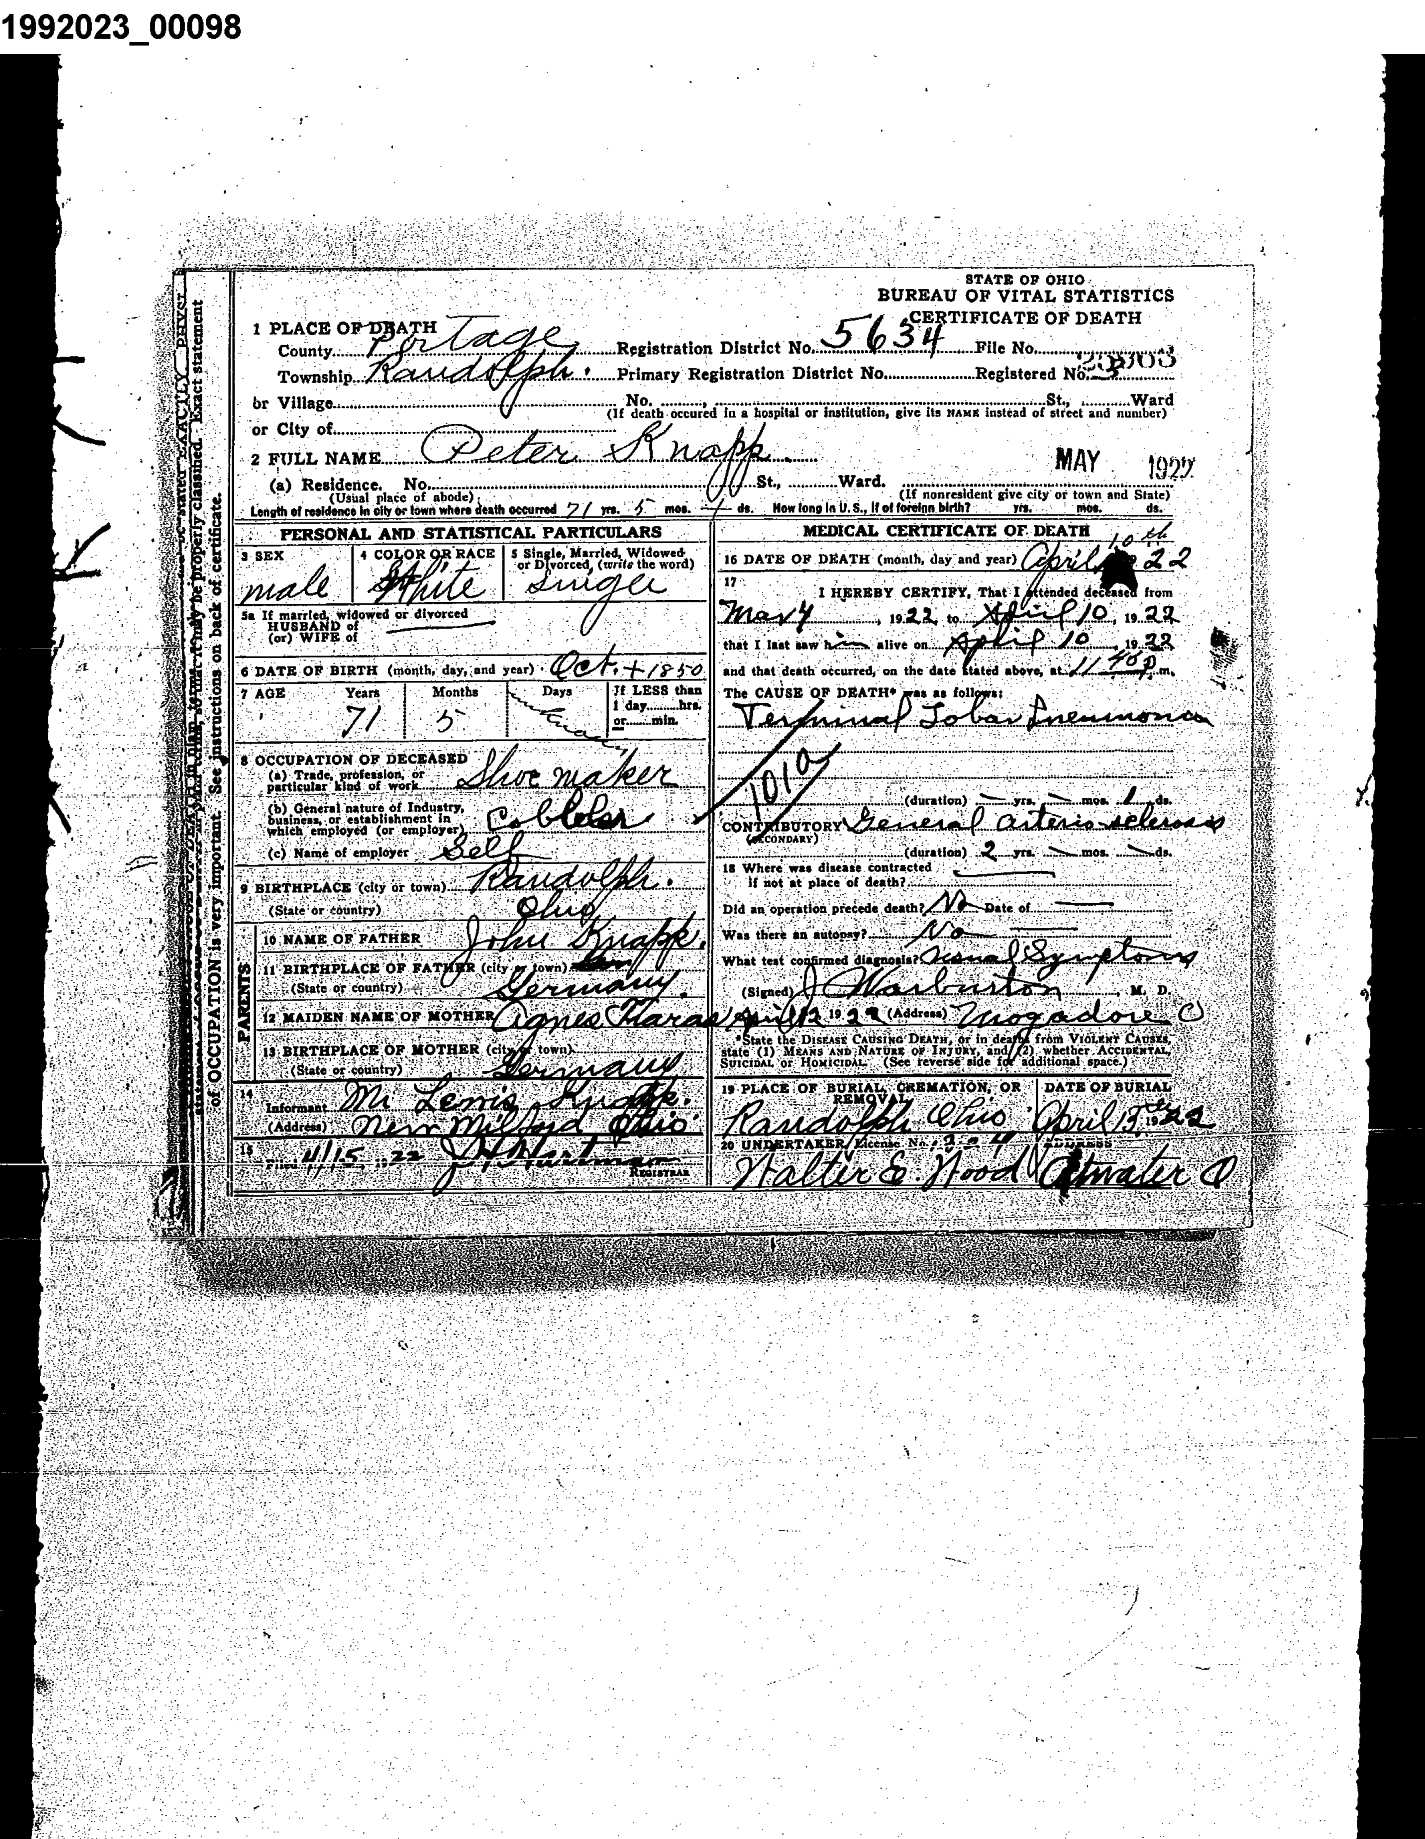 1992023_00098
STATE OF OHIO
BUREAU OF VITAL STATISTICS
CERTIFICATE OF DEATH
1 PLACE OF DEATH
County Portage Registration District No. 5634 File No.
Township Randolph. Primary Registration District No. Registered No. 3
or Village No. , St., Ward
(If death occured in a hospital or institution, give its NAME instead of street and number)
or City of
2 FULL NAME Peter Knapp.
MAY 1922
(a) Residence. No. St., Ward.
(Usual place of abode) (If nonresident give city or town and State)
Length of residence in city or town where death occurred 71 yrs. 5 mos. — ds. How long in U. S., if of foreign birth? yrs. mos. ds.
PERSONAL AND STATISTICAL PARTICULARS
3 SEX 4 COLOR OR RACE 5 Single, Married, Widowed or Divorced, (write the word)
male White Single
5a If married, widowed or divorced
HUSBAND of
(or) WIFE of
6 DATE OF BIRTH (month, day, and year) Oct. + 1850
7 AGE Years Months Days If LESS than
1 day hrs.
or min.
71 5 unknown
8 OCCUPATION OF DECEASED
(a) Trade, profession, or
particular kind of work Shoe maker
(b) General nature of Industry,
business, or establishment in
which employed (or employer) Cobbler
(c) Name of employer Self
9 BIRTHPLACE (city or town) Randolph.
(State or country) Ohio
PARENTS
10 NAME OF FATHER John Knapp.
11 BIRTHPLACE OF FATHER (city or town)
(State or country) Germany.
12 MAIDEN NAME OF MOTHER Agnes
13 BIRTHPLACE OF MOTHER (city or town)
(State or country) Germany
14
Informant Mr Lewis Knapp.
(Address) New Milford Ohio
15
Filed 4/15, 1922 Hartman
REGISTRAR
MEDICAL CERTIFICATE OF DEATH
16 DATE OF DEATH (month, day and year) April 10th 22
17
I HEREBY CERTIFY, That I attended deceased from
, 1922, to April 10, 1922
that I last saw him alive on April 10, 1922
and that death occurred, on the date stated above, at 11 40 P.m.
The CAUSE OF DEATH* was as follows:
Terminal Lobar Pneumonia
101a
(duration) — yrs. — mos. 1 ds.
CONTRIBUTORY General arterio sclerosis
(SECONDARY)
(duration) 2 yrs. — mos. — ds.
18 Where was disease contracted
if not at place of death?
Did an operation precede death? No Date of
Was there an autopsy? No
What test confirmed diagnosis? Usual Symptoms
(Signed) J Warburton, M. D.
April 12 1922 (Address) Mogadore O
*State the DISEASE CAUSING DEATH, or in deaths from VIOLENT CAUSES,
state (1) MEANS AND NATURE OF INJURY, and (2) whether ACCIDENTAL,
SUICIDAL or HOMICIDAL. (See reverse side for additional space.)
19 PLACE OF BURIAL, CREMATION, OR REMOVAL DATE OF BURIAL
Randolph Ohio April 13 1922
20 UNDERTAKER, License No. ADDRESS
Walter E. Wood Atwater O
may be properly classified. Exact statement
of OCCUPATION is very important. See instructions on back of certificate.